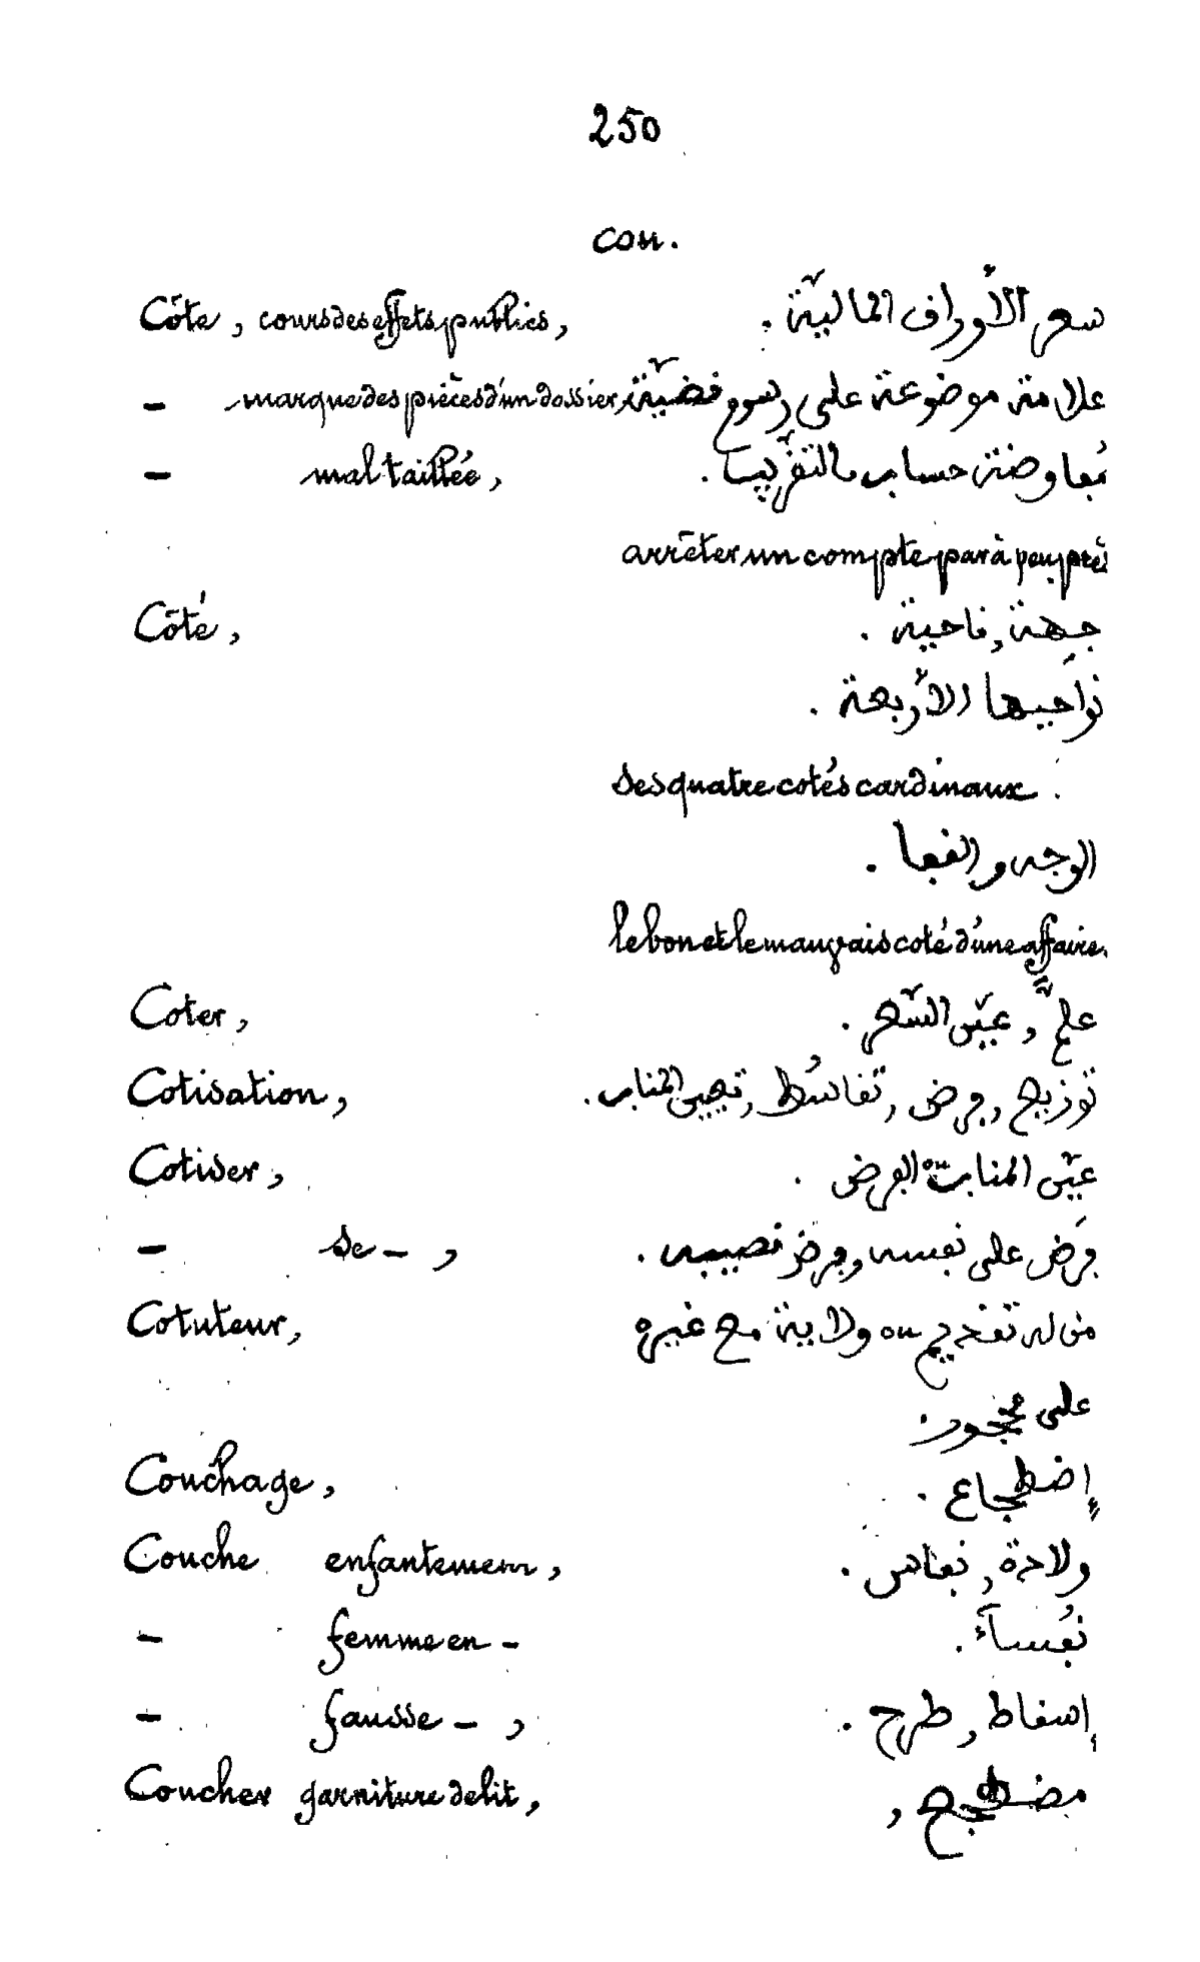 250
cou.
Côte, cours des effets publics, سعر الأوراق الماليّة .
— marque des pièces d'un dossier, علامة موضوعة على رسوم قضيّة
— mal taillée, مُفاوضة حساب بالتقريب .
arrêter un compte par à peu près
Côté, جهة, ناحية .
نواحيها الأربعة .
des quatre cotés cardinaux .
الوجه والقفا .
le bon et le mauvais coté d'une affaire.
Coter, علّم, عيّن السّعر .
Cotisation, توزيع, فرض, تقاسُط, تعيين المناب .
Cotiser, عيّن المناب ou الفرض .
— se —, فرَض على نفسه, فرض نصيبه .
Cotuteur, من له تقديم ou ولاية مع غيره
على محجور .
Couchage, إضطجاع .
Couche enfantement, ولادة, نفاس .
— femme en — نفُسآء .
— fausse —, إسقاط, طرح .
Coucher garniture de lit, مضطجع ,